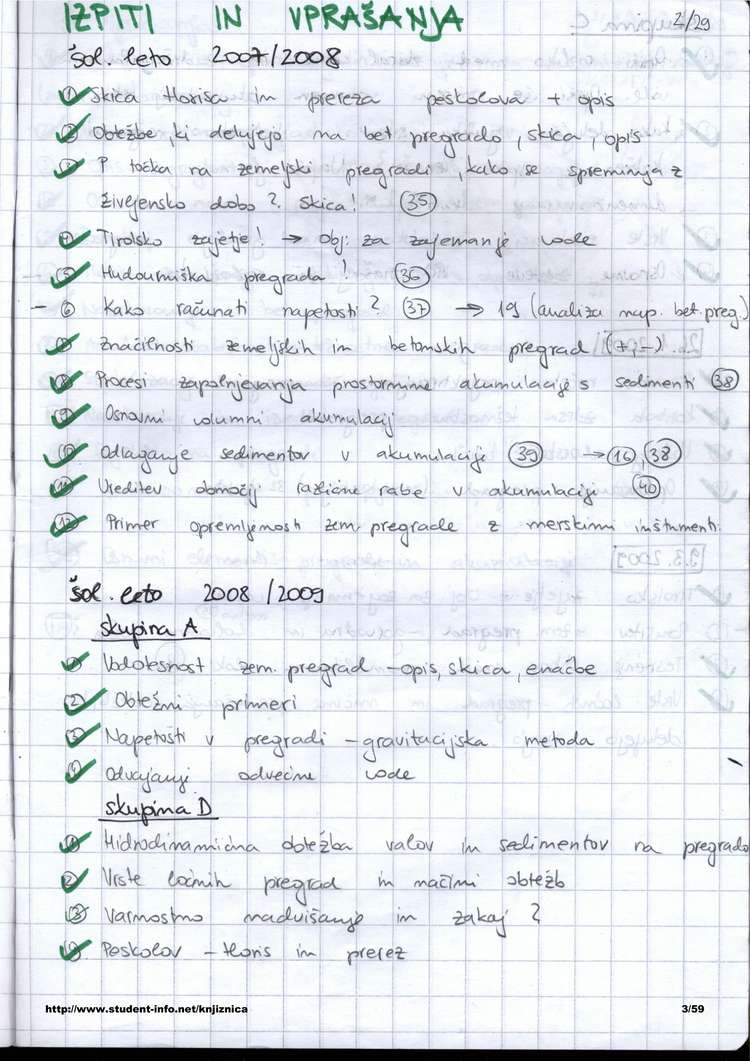 IZPITI IN VPRAŠANJA 2/29
šol. leto 2007/2008
① Skica tlorisa in prereza peskolova + opis
② Obtežbe, ki delujejo na bet pregrado, skica, opis
③ P točka na zemeljski pregradi, kako se spreminja z
življensko dobo? Skica! 35
④ Tirolsko zajetje! → Obj. za zajemanje vode
⑤ Hudourniška pregrada! 36
- ⑥ Kako računati napetosti? 37 → 19 (analiza nap. bet. preg.)
⑦ Značilnosti zemeljskih in betonskih pregrad (+, -)
⑧ Procesi zapolnjevanja prostornine akumulacije s sedimenti 38
⑨ Osnovni volumni akumulacij
⑩ Odlaganje sedimentov v akumulaciji 39 → 16, 38
⑪ Ureditev območij različne rabe v akumulaciji 40
⑫ Primer opremljenosti zem. pregrade z merskimi inštrumenti.
šol. leto 2008/2009
skupina A
① Vodotesnost zem. pregrad - opis, skica, enačbe
② Obtežni primeri
③ Napetosti v pregradi - gravitacijska metoda
④ Odvajanje odvečne vode
skupina D
① Hidrodinamična obtežba valov in sedimentov na pregrado
② Vrste ločnih pregrad in načini obtežb
③ Varnostno nadvišanje in zakaj?
④ Peskolov - tloris in prerez
http://www.student-info.net/knjiznica 3/59